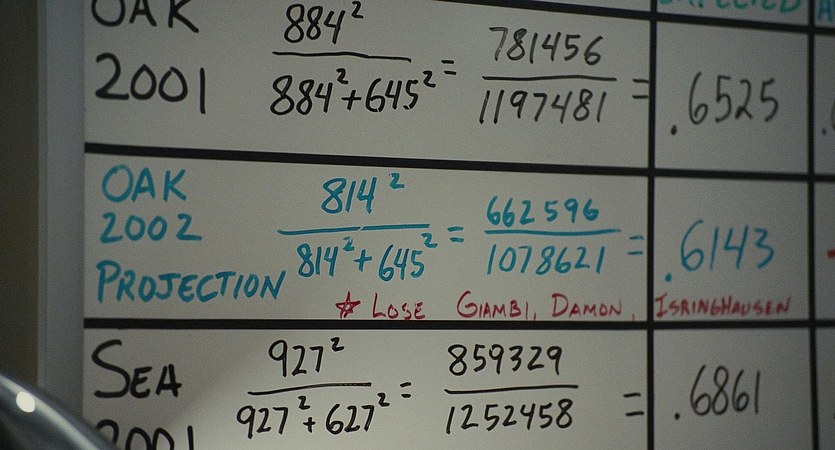 OAK
2001
884² / 884²+645² = 781456 / 1197481 = .6525
OAK
2002
PROJECTION
814² / 814²+645² = 662596 / 1078621 = .6143
☆ LOSE GIAMBI, DAMON, ISRINGHAUSEN
SEA
2001
927² / 927²+627² = 859329 / 1252458 = .6861